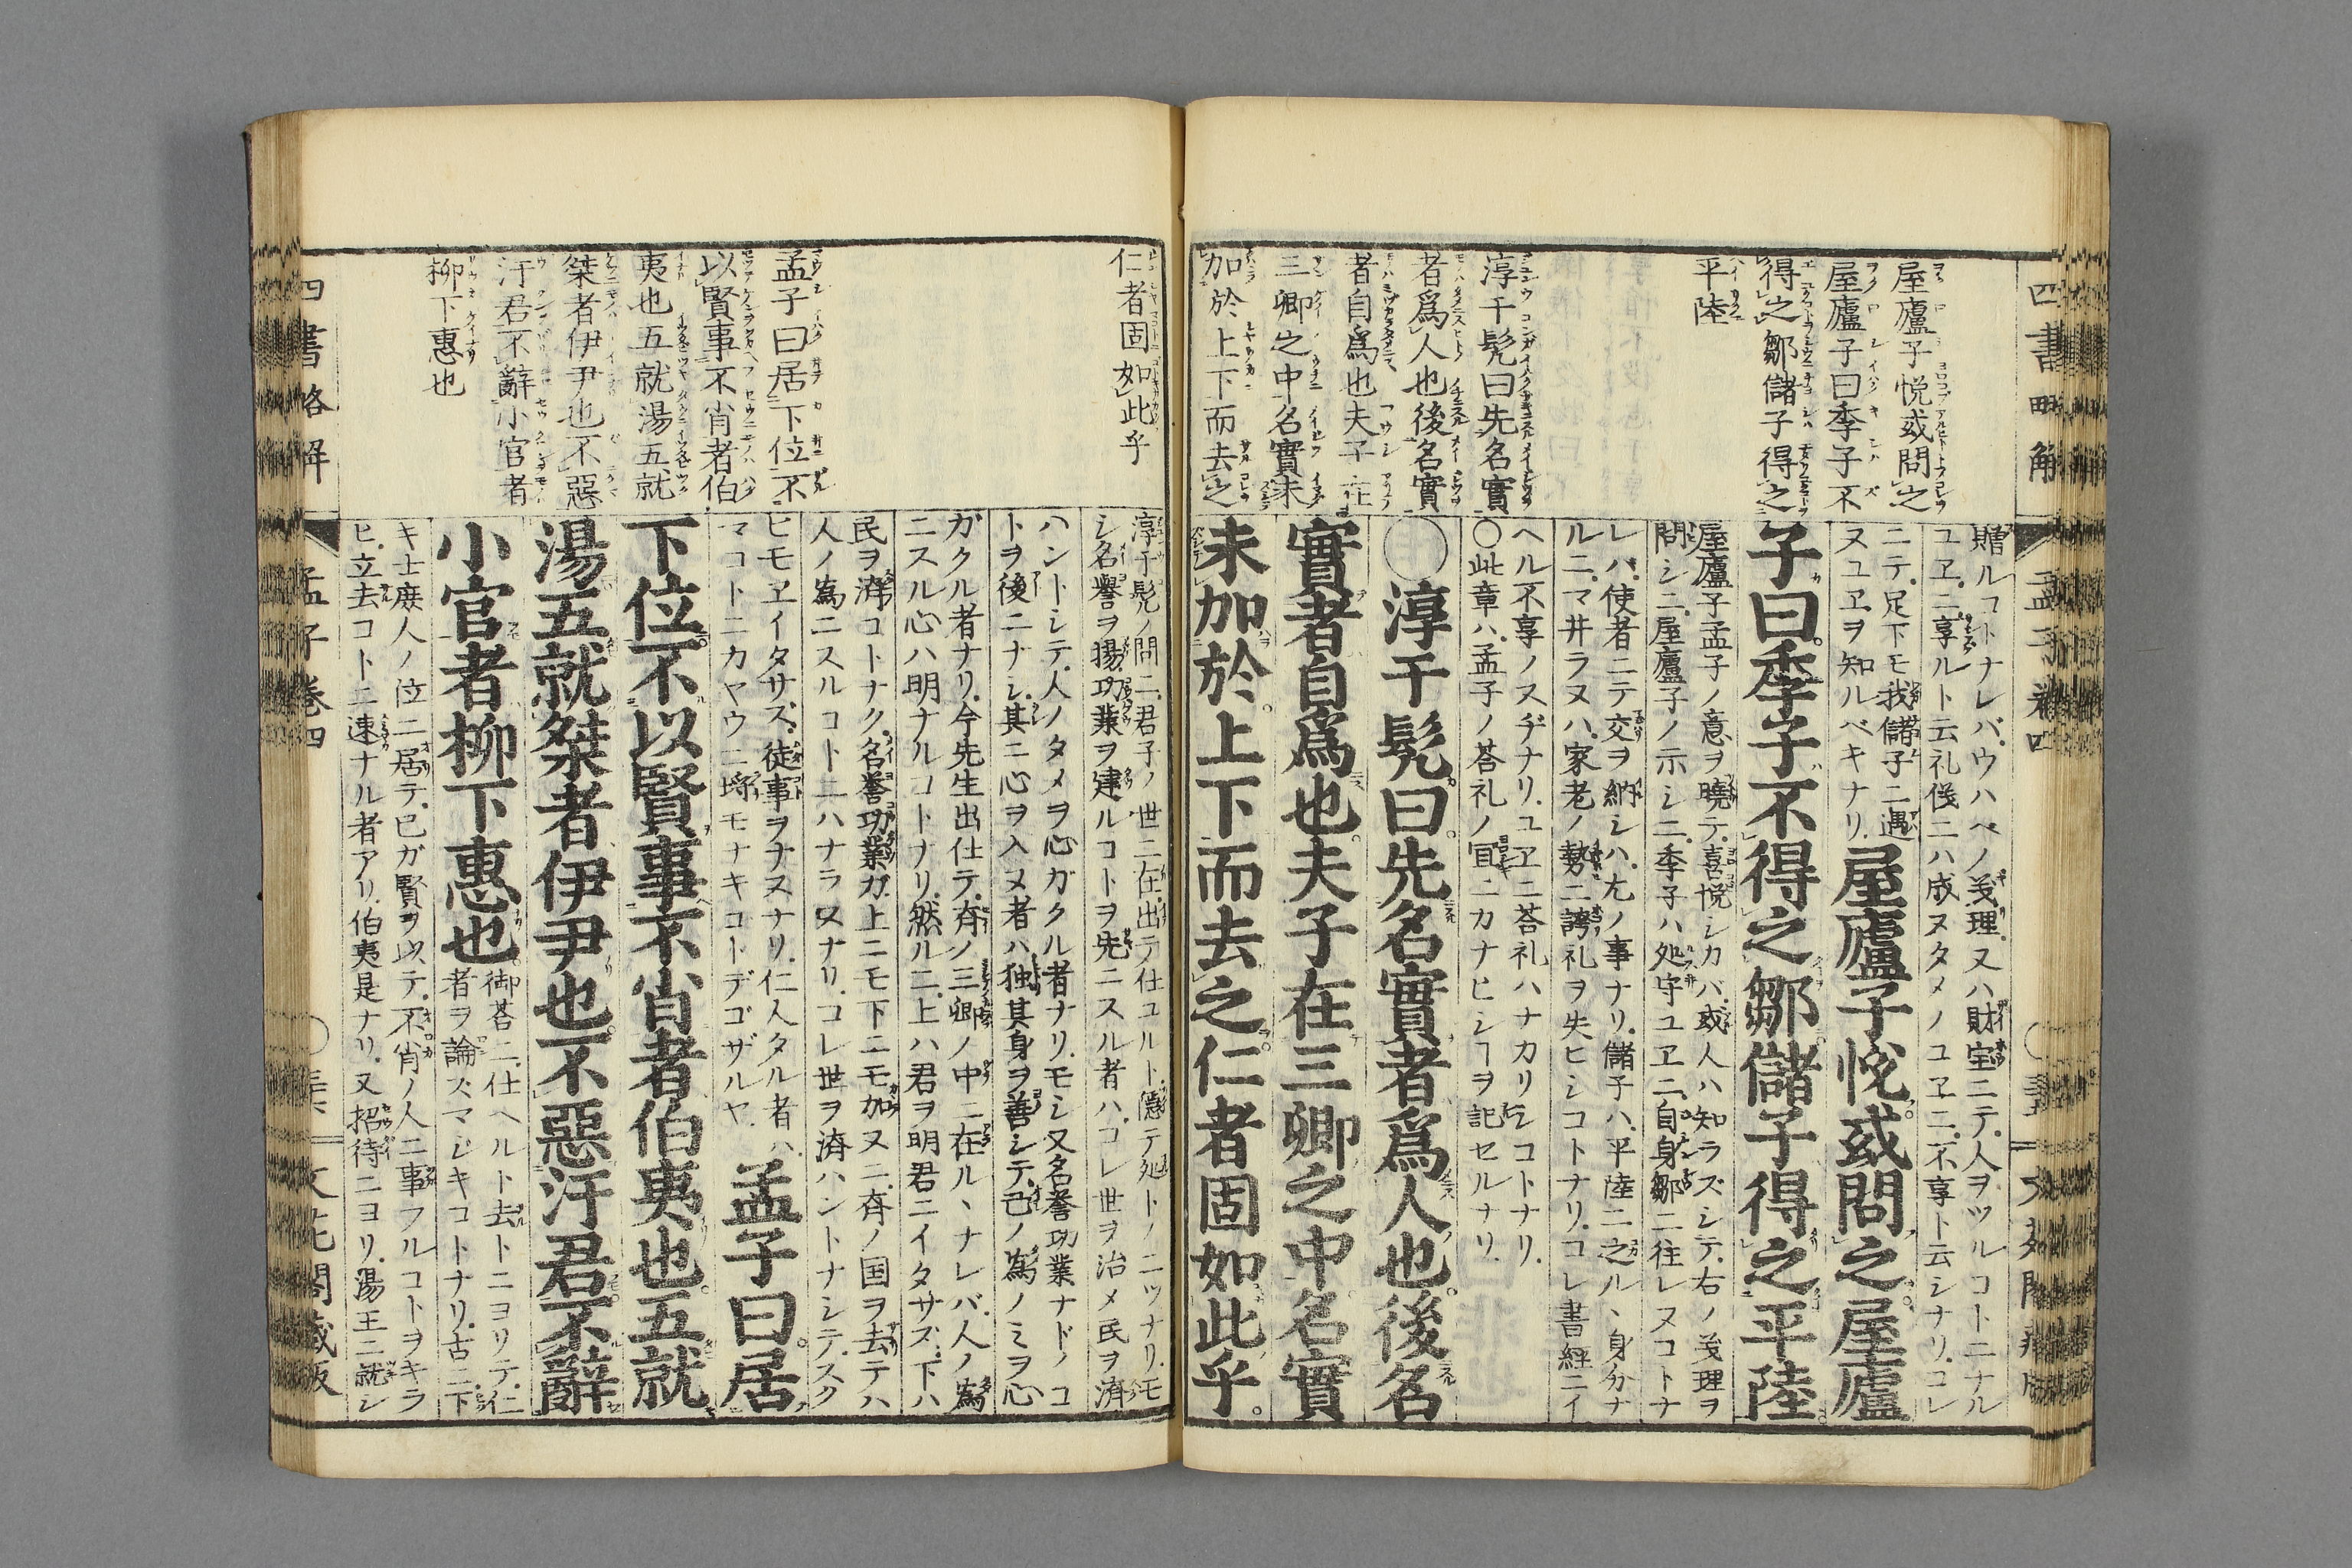 四書略解
孟子巻四
屋廬子悦或問之
屋廬子曰季子不
得之鄒儲子得之
平陸
淳于髡曰先名實
者爲人也後名實
者自爲也夫子在
三卿之中名實未
加於上下而去之
贈ルコトナレバ、ウハベノ義理、又ハ財宝ニテ、人ヲツルコトニナル
ユヱ、ニ享ルト云礼儀ニハ成ヌタメノユヱニ、不享ト云シナリ、コレ
ニテ、足下モ我儲子ニ遇
ヌユヱヲ知ルベキナリ、
屋廬子悦或問之屋廬
子曰季子不得之鄒儲子得之平陸
屋廬子孟子ノ意ヲ曉テ、喜悦シカバ、或人ハ知ラズシテ、右ノ義理ヲ
問シニ、屋廬子ノ示シニ、季子ハ処守ユヱニ、自身鄒ニ往レヌコトナ
レバ、使者ニテ交ヲ納シハ、尤ノ事ナリ、儲子ハ、平陸ニ之ル、身分ナ
ルニ、マ井ラヌハ、家老ノ勢ニ誇礼ヲ失ヒシコトナリ、コレ書経ニイ
ヘル不享ノスヂナリ、ユヱニ荅礼ハナカリシコトナリ、
〇此章ハ、孟子ノ荅礼ノ冝ニカナヒシヿヲ記セルナリ、
〇淳于髡曰先名實者爲人也後名
實者自爲也夫子在三卿之中名實
未加於上下而去之仁者固如此乎
仁者固如此乎
孟子曰居下位不
以賢事不肖者伯
夷也五就湯五就
桀者伊尹也不惡
汙君不辭小官者
柳下惠也
淳于髡ノ問ニ、君子ノ世ニ在、出テ仕ユルト、隱テ処トノ二ツナリ、モ
シ名譽ヲ揚、功業ヲ建ルコトヲ先ニスル者ハ、コレ世ヲ治メ民ヲ濟
ハントシテ、人ノタメヲ心ガクル者ナリ、モシ又名誉功業ナドノコ
トヲ後ニナシ、其ニ心ヲ入ヌ者ハ、独其身ヲ善シテ、己ノ為ノミヲ心
ガクル者ナリ、今先生出仕テ、斉ノ三卿ノ中ニ在ル、ナレバ、人ノ為
ニスル心ハ明ナルコトナリ、然ルニ、上ハ君ヲ明君ニイタサズ、下ハ
民ヲ濟コトナク、名誉功業ガ、上ニモ下ニモ加ヌニ、斉ノ国ヲ去テハ
人ノ為ニスルコトニハナラヌナリ、コレ世ヲ済ハントナシテ、スク
ヒモヱイタサズ、徒事ヲナスナリ、仁人タル者ハ、
マコトニカヤウニ埒モナキコトデゴザルヤ、
孟子曰居
下位不以賢事不肖者伯夷也五就
湯五就桀者伊尹也不惡汙君不辭
小官者柳下惠也
御荅ニ、仕ヘルト去トニヨリテ、仁
者ヲ論ズマジキコトナリ、古ニ下
キ士庶人ノ位ニ居テ、己ガ賢ヲ以テ、不肖ノ人ニ事フルコトヲキラ
ヒ、立去コトニ速ナル者アリ、伯夷是ナリ、又招待ニヨリ、湯王ニ就シ
四書略解
孟子巻四
文花閣蔵版